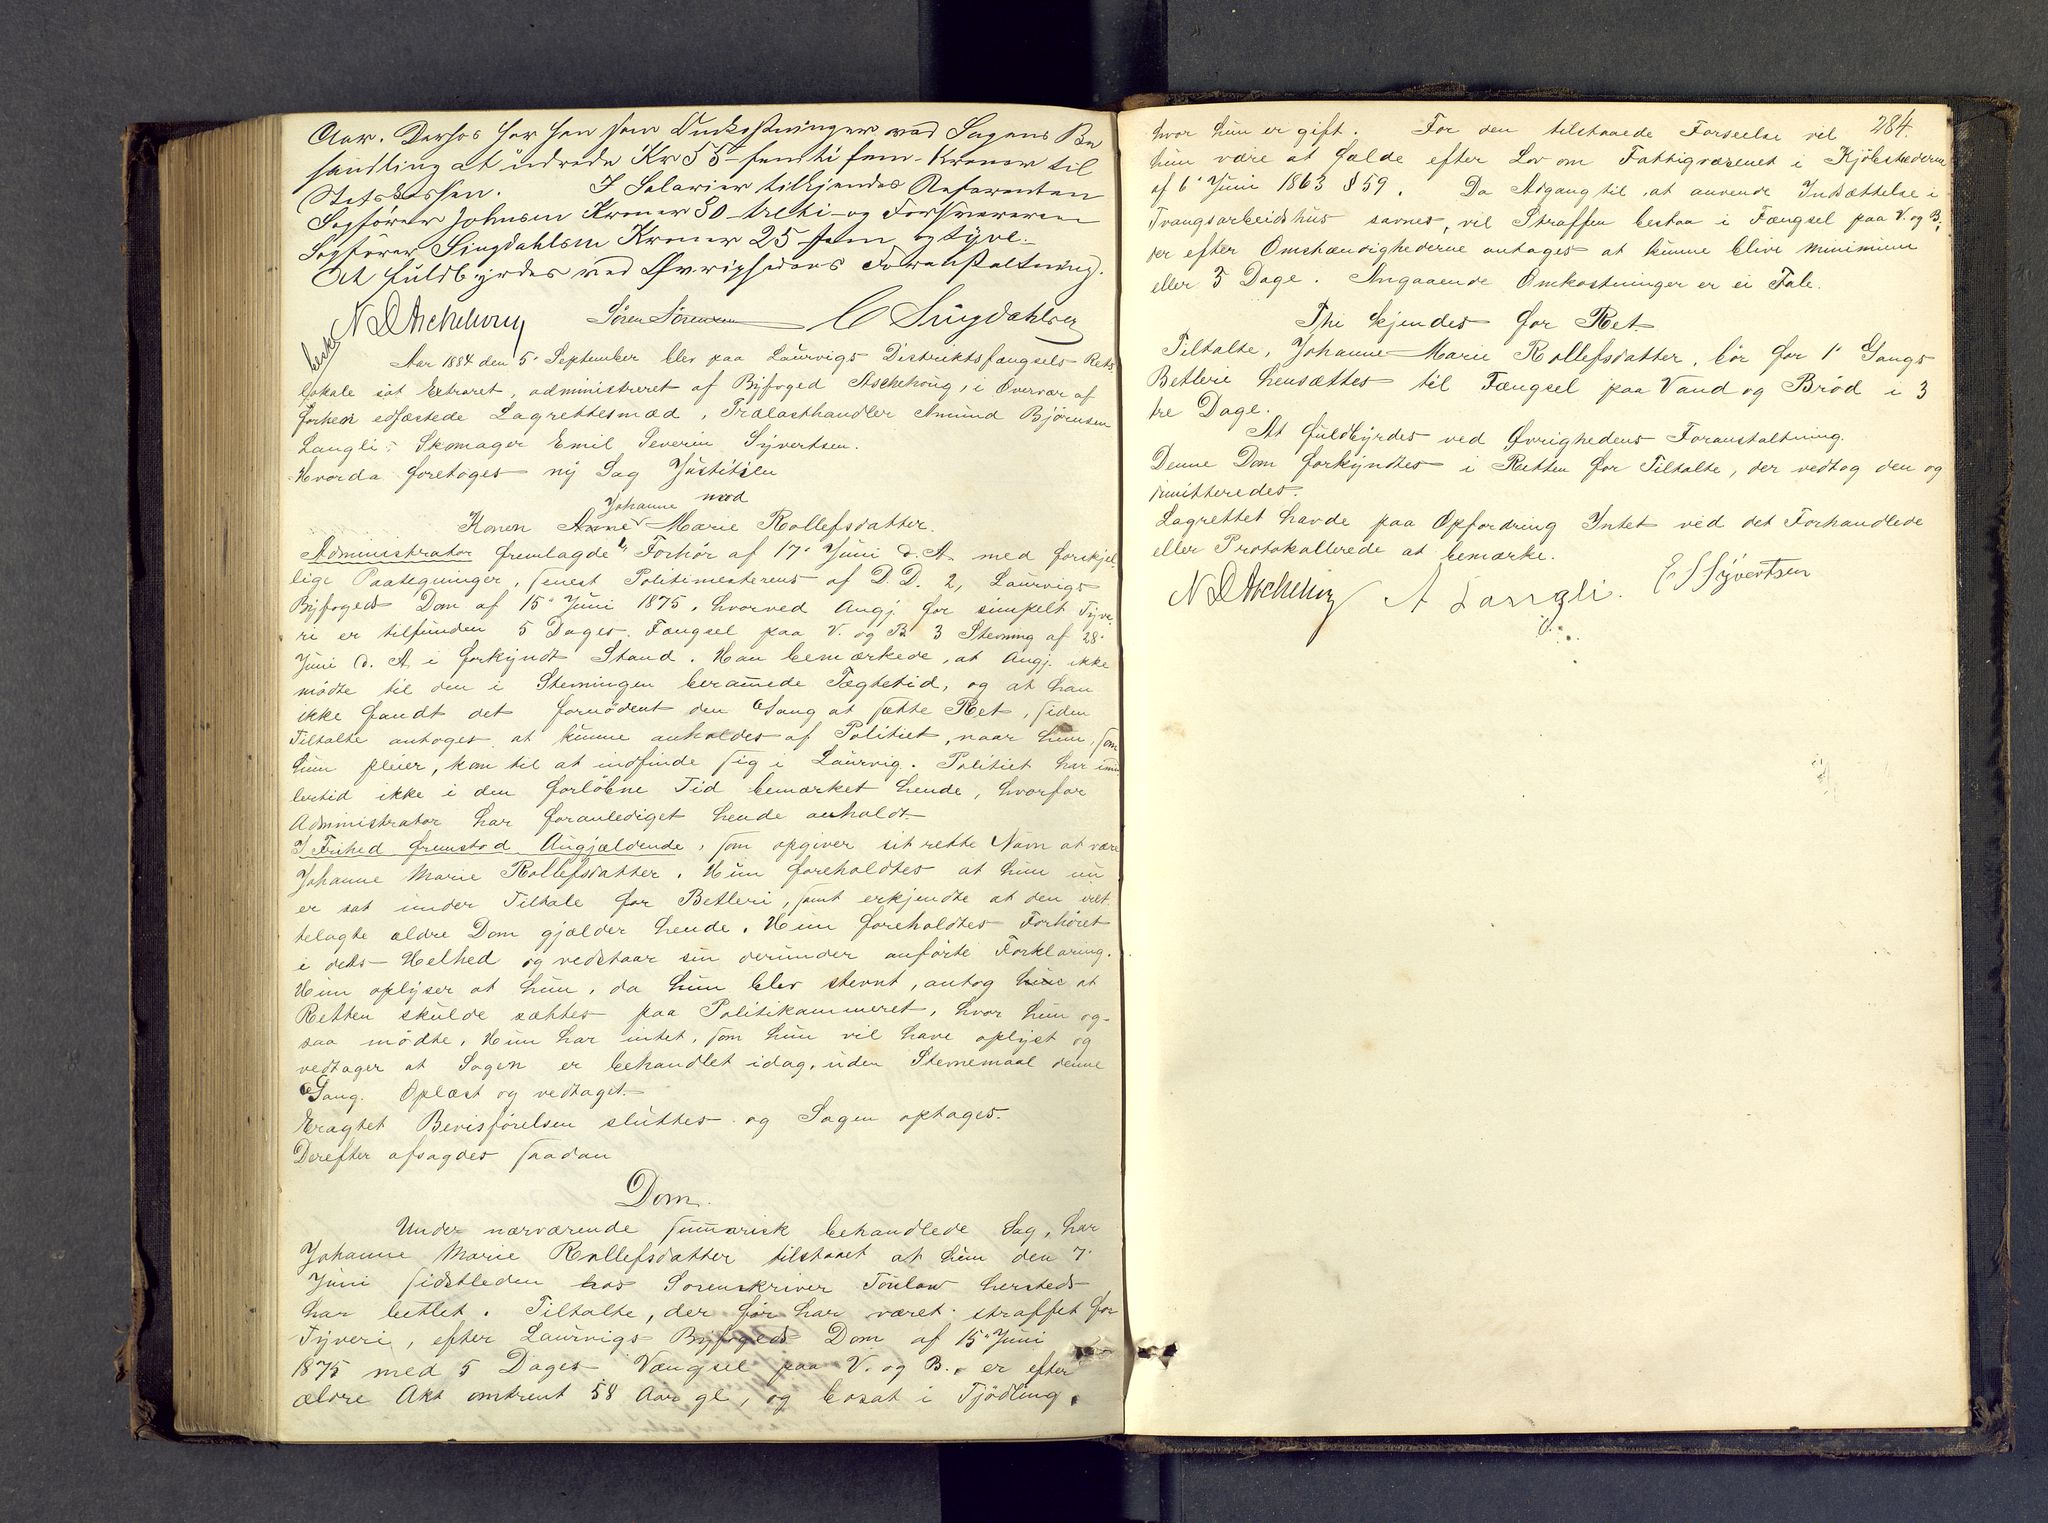 Aar. Derhos bør han som Omkostninger ved Sagens Be
handling at udrede Kr 55 - femti fem - Kroner til
Statskassen. I Salarier tilkjendes Referenten
Sagfører Johnsen Kroner 30 - treti - og Forsvareren
Sagfører Singdahlsen Kroner 25 - fem og tyve.
At fuldbyrdes ved Øvrighedens Foranstaltning.
N D Aschehoug Søren Sørensen C Singdahlsen
Aar 1884 den 5' September blev paa Laurvigs Distriktsfængsels Rets
lokale sat Extraret, administreret af Byfoged Aschehoug, i Overvær af
forhen edfæstede Lagrettesmæd, Trælasthandler Amund Bjørnsen
Langli, Skomager Emil Severin Syvertsen.
Hvorda foretoges ny Sag Justitien
mod
Johanne
Konen Anne Marie Rollefsdatter.
Administrator fremlagde 1, Forhør af 17' Juni d. A. med forskjel
lige Paategninger, senest Politimesterens af D.D. 2, Laurvigs
Byfogeds Dom af 15' Juni 1875, hvorved Angj. for simpelt Tyve-
ri er tilfunden 5 Dages Fængsel paa V. og B. 3 Stevning af 28'
Juni d. A i forkyndt Stand. Han bemærkede, at Angj. ikke
mødte til den i Stevningen berammede Tægtetid, og at han
ikke fandt det fornødent den Gang at sætte Ret, siden
Tiltalte antoges at kunne anholdes af Politiet, naar hun, som
hun pleier, kom til at indfinde sig i Laurvig. Politiet har imid
lertid ikke i den forløbne Tid bemærket hende, hvorfor
Administrator har foranlediget hende anholdt.
I Frihed fremstod Angjældende, som opgiver sit rette Navn at være
Johanne Marie Rollefsdatter. Hun foreholdtes at hun nu
er sat under Tiltale for Betleri, samt erkjendte at den iret
telagte ældre Dom gjælder hende. Hun foreholdtes Forhøret
i dets Helhed og vedstaar sin derunder anførte Forklaring.
Hun oplyser at hun, da hun blev stevnt, antog hun at
Retten skulde sættes paa Politikammeret, hvor hun og-
saa mødte. Hun har intet, som hun vil have oplyst og
vedtager at Sagen er behandlet idag, uden Stevnemaal denne
Gang. Oplæst og vedtaget.
Eragtet Bevisførelsen sluttes og Sagen optages.
Derefter afsagdes saadan
Dom.
Under nærværende summarisk behandlede Sag, har
Johanne Marie Rollefsdatter tilstaaet at hun den 7'
Juni sidstleden hos Sorenskriver Toulow hersteds
har betlet. Tiltalte, der før har været straffet for
Tyveri, efter Laurvigs Byfogeds Dom af 15' Juni
1875 med 5 Dages Vængsel paa V. og B., er efter
ældre Akt omtrent 58 Aar gl, og bosat i Tjødling,
284.
hvor hun er gift. For den tilstaaede Forseelse vil
hun være at fælde efter Lov om Fattigvæsenet i Kjøbstæderne
af 6' Juni 1863 § 59. Da Adgang til at anvende Indsættelse i
Tvangsarbeidshus savnes, vil Straffen bestaa i Fængsel paa V. og B.,
der efter Omstændighederne antages at kunne blive minimum
eller 3 Dage. Angaaende Omkostninger er ei Tale.
Thi kjendes for Ret
Tiltalte, Johanne Marie Rollefsdatter, bør for 1' Gangs
Betleri hensættes til Fængsel paa Vand og Brød i 3
tre Dage.
At fuldbyrdes ved Øvrighedens Foranstaltning.
Denne Dom forkyndtes i Retten for Tiltalte, der vedtog den og
dimitteredes.
Lagrettet havde paa Opfordring Intet ved det Forhandlede
eller Protokollerede at bemærke.
N D Aschehoug A Langli. E S Syvertsen